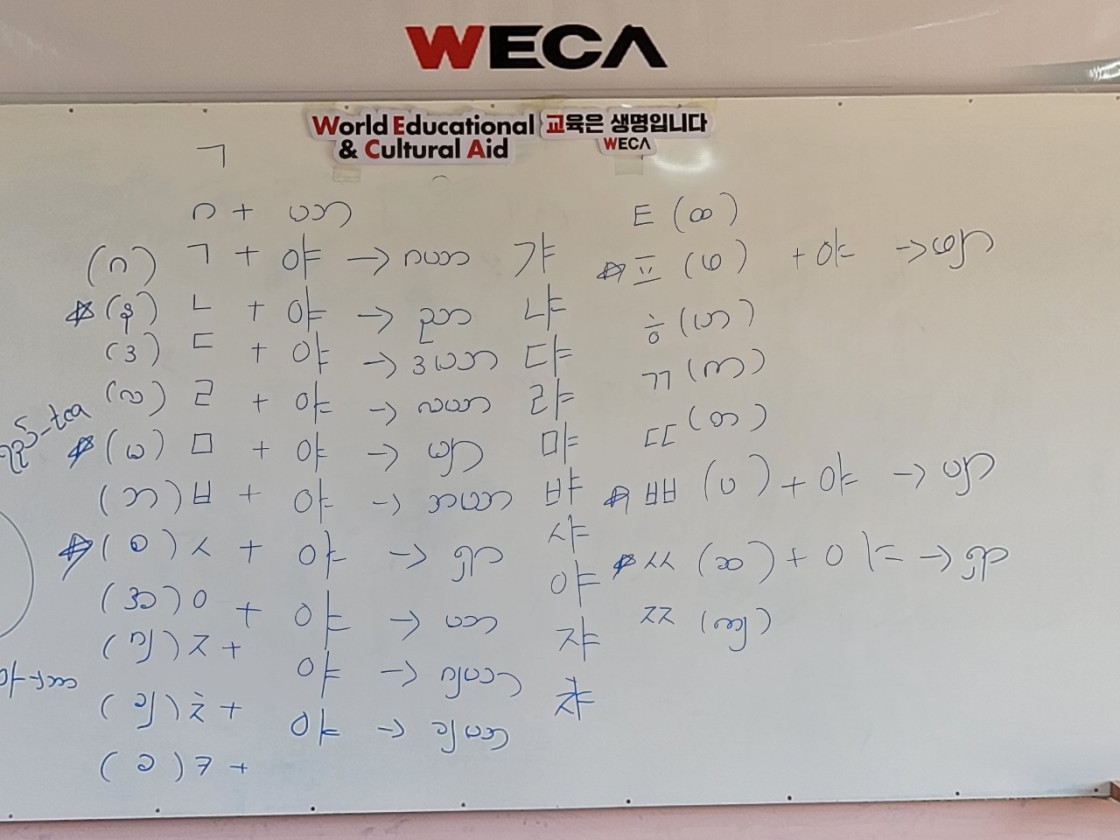 WECA
World Educational
& Cultural Aid
교육은 생명입니다
WECA
ㄱ
ဂ + ယာ
(ဂ) ㄱ + 야 → ဂယာ 갸
☆ (န) ㄴ + 야 → ညာ 냐
(ဒ) ㄷ + 야 → ဒယာ 댜
(လ) ㄹ + 야 → လယာ 랴
☆ (မ) ㅁ + 야 → မျာ 먀
(ဘ) ㅂ + 야 → ဘယာ 뱌
☆ (စ) ㅅ + 야 → ရှာ 샤
(အ) ㅇ + 야 → ယာ 야
(ဂျ) ㅈ + 야 → ဂျယာ 쟈
(ချ) ㅊ + 야 → ချယာ 챠
(ခ) ㅋ +
ㅌ (ထ)
☆ ㅍ (ဖ) + 야 → ဖျာ
ㅎ (ဟ)
ㄲ (က)
ㄸ (တ)
☆ ㅃ (ပ) + 야 → ပျာ
☆ ㅆ (ဆ) + 야 → ရှာ
ㅉ (ကျ)
-tea